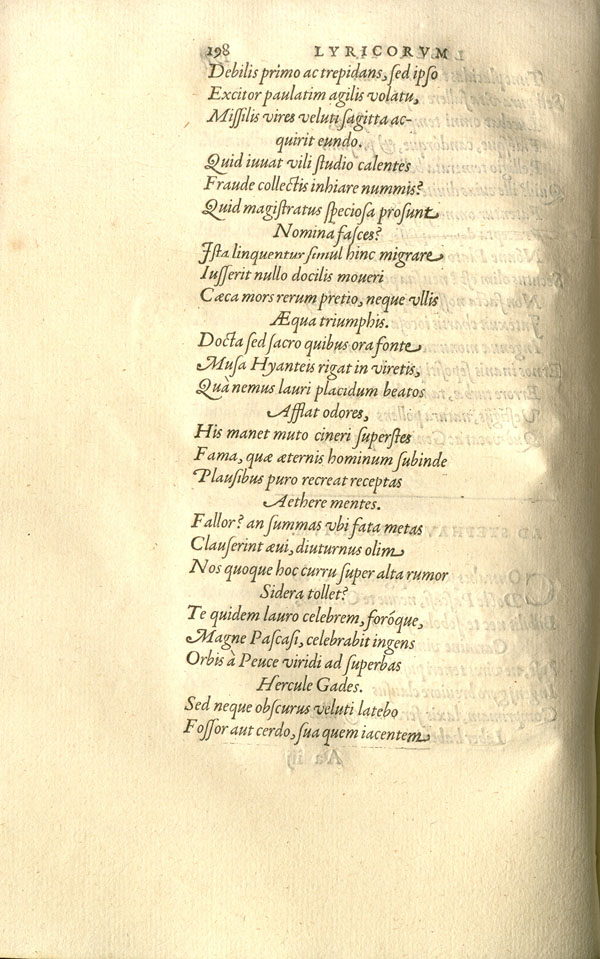 198 LYRICORVM
Debilis primo ac trepidans, sed ipso
Excitor paulatim agilis volatu,
Missilis vires veluti sagitta ac-
quirit eundo.
Quid iuuat vili studio calentes
Fraude collectis inhiare nummis?
Quid magistratus speciosa prosunt
Nomina fasces?
Ista linquentur simul hinc migrare
Iusserit nullo docilis moueri
Cæca mors rerum pretio, neque vllis
Æqua triumphis.
Docta sed sacro quibus ora fonte
Musa Hyanteis rigat in viretis,
Quà nemus lauri placidum beatos
Afflat odores,
His manet muto cineri superstes
Fama, quæ æternis hominum subinde
Plausibus puro recreat receptas
Aethere mentes.
Fallor? an summas vbi fata metas
Clauserint æui, diuturnus olim
Nos quoque hoc curru super alta rumor
Sidera tollet?
Te quidem lauro celebrem, foróque,
Magne Pascasi, celebrabit ingens
Orbis à Peuce viridi ad superbas
Hercule Gades.
Sed neque obscurus veluti latebo
Fossor aut cerdo, sua quem iacentem